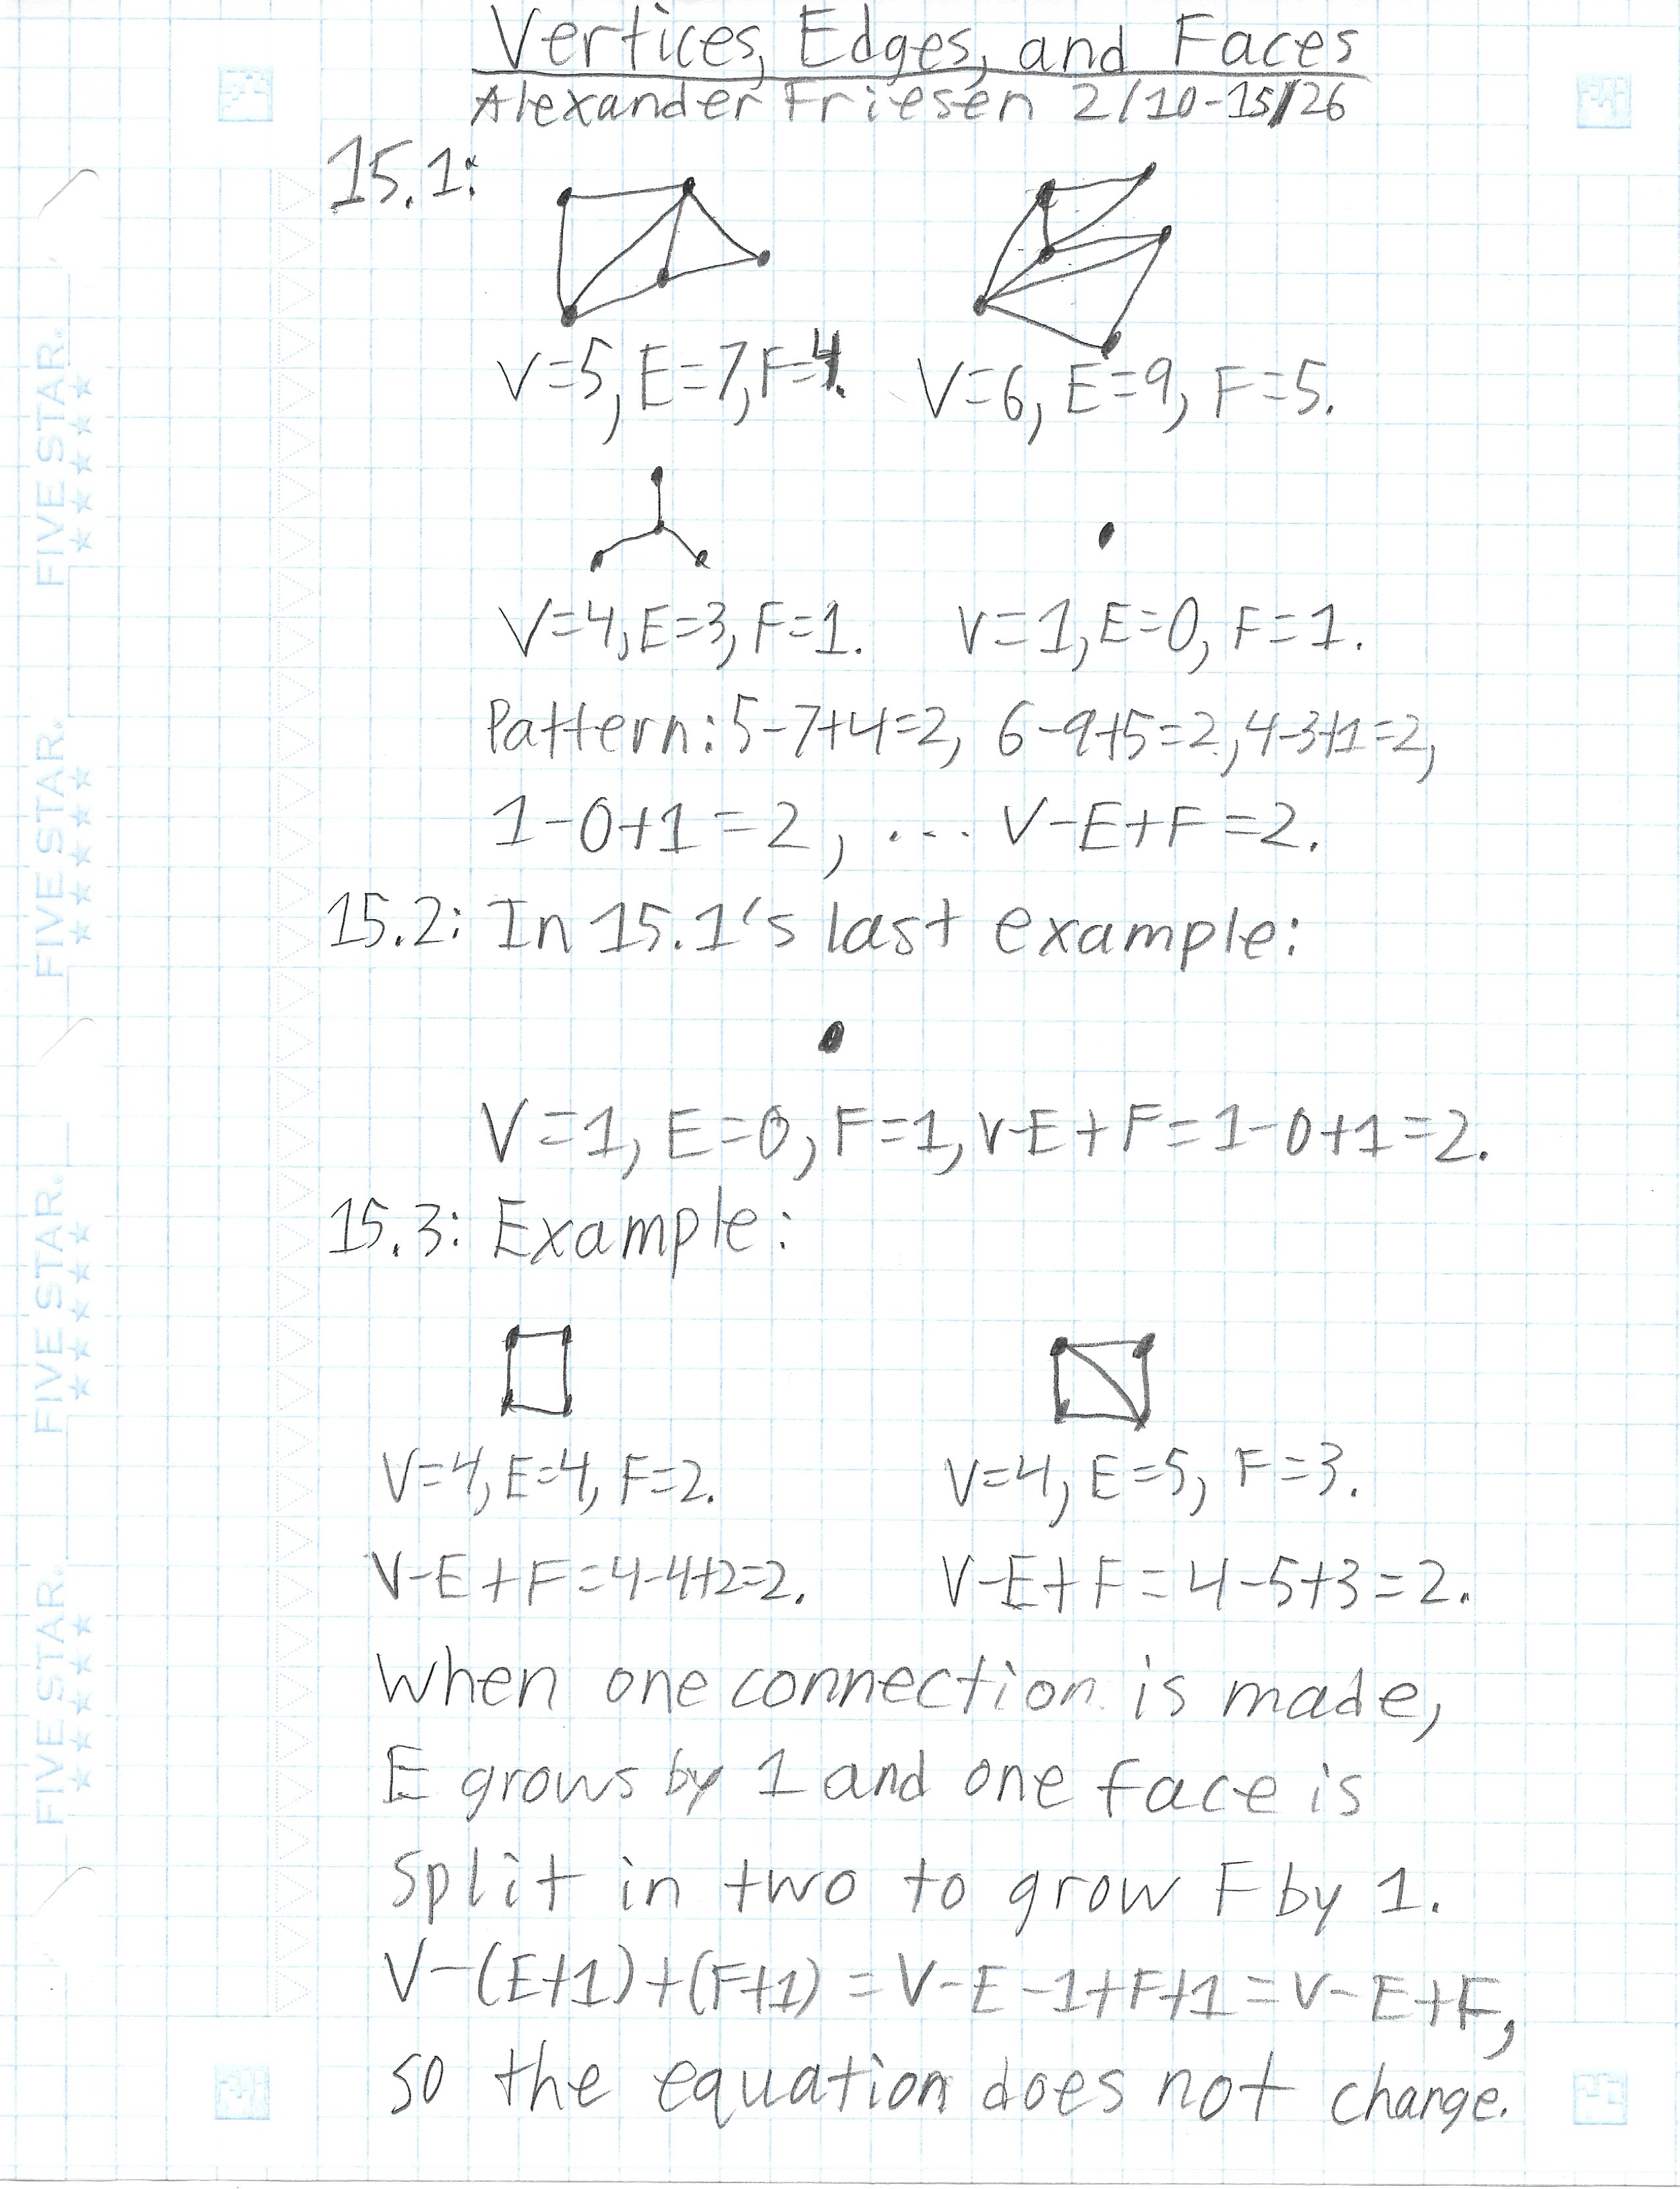 Vertices, Edges, and Faces
Alexander Friesen 2/10-15/26
15.1:
V=5, E=7, F=4. V=6, E=9, F=5.
V=4, E=3, F=1. V=1, E=0, F=1.
Pattern: 5-7+4=2, 6-9+5=2, 4-3+1=2,
1-0+1=2, ... V-E+F=2.
15.2: In 15.1's last example:
V=1, E=0, F=1, V-E+F=1-0+1=2.
15.3: Example:
V=4, E=4, F=2. V=4, E=5, F=3.
V-E+F=4-4+2=2. V-E+F=4-5+3=2.
When one connection is made,
E grows by 1 and one face is
split in two to grow F by 1.
V-(E+1)+(F+1)=V-E-1+F+1=V-E+F,
so the equation does not change.
FIVE STAR.
FIVE STAR.
FIVE STAR.
FIVE STAR.